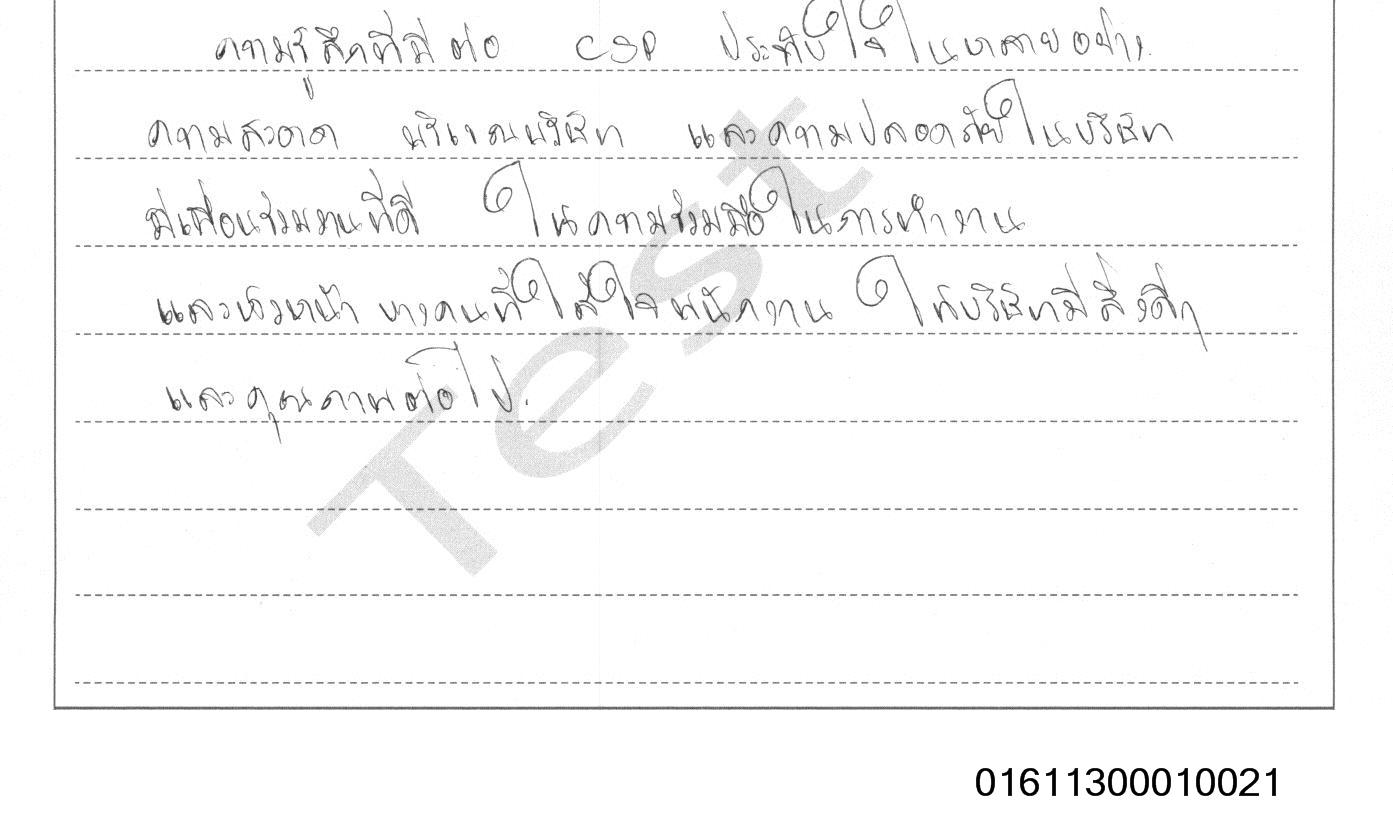 ความรู้สึกที่มีต่อ CSP ประทับใจในหลายอย่าง
ความสะอาด บริเวณบริษัท และความปลอดภัยในบริษัท
มีเพื่อนร่วมงานที่ดี ให้ความร่วมมือในการทำงาน
และหัวหน้า บางคนที่ใส่ใจพนักงาน ให้บริษัทมีสิ่งดีๆ
และคุณภาพต่อไป.
Test
01611300010021